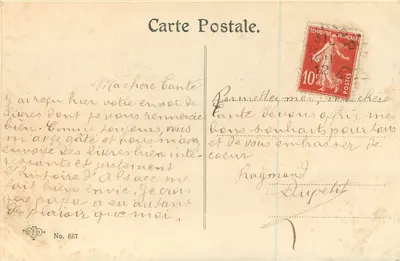 Carte Postale.
Ma chère Tante
J'ai reçu hier votre envoi de
livres dont je vous remercie
bien. Comme toujours, vous
m'avez gâté et vous m'avez
envoyé des livres bien inté-
ressants et justement
l'histoire d'Alsace me
fait bien envie. Je crois
que papa a eu autant
de plaisir que moi.
No. 687
10
POSTES
Permettez moi, ma chère
Tante de vous offrir mes
bons souhaits pour tous
et de vous embrasser de
coeur
Raymond
Dupetit